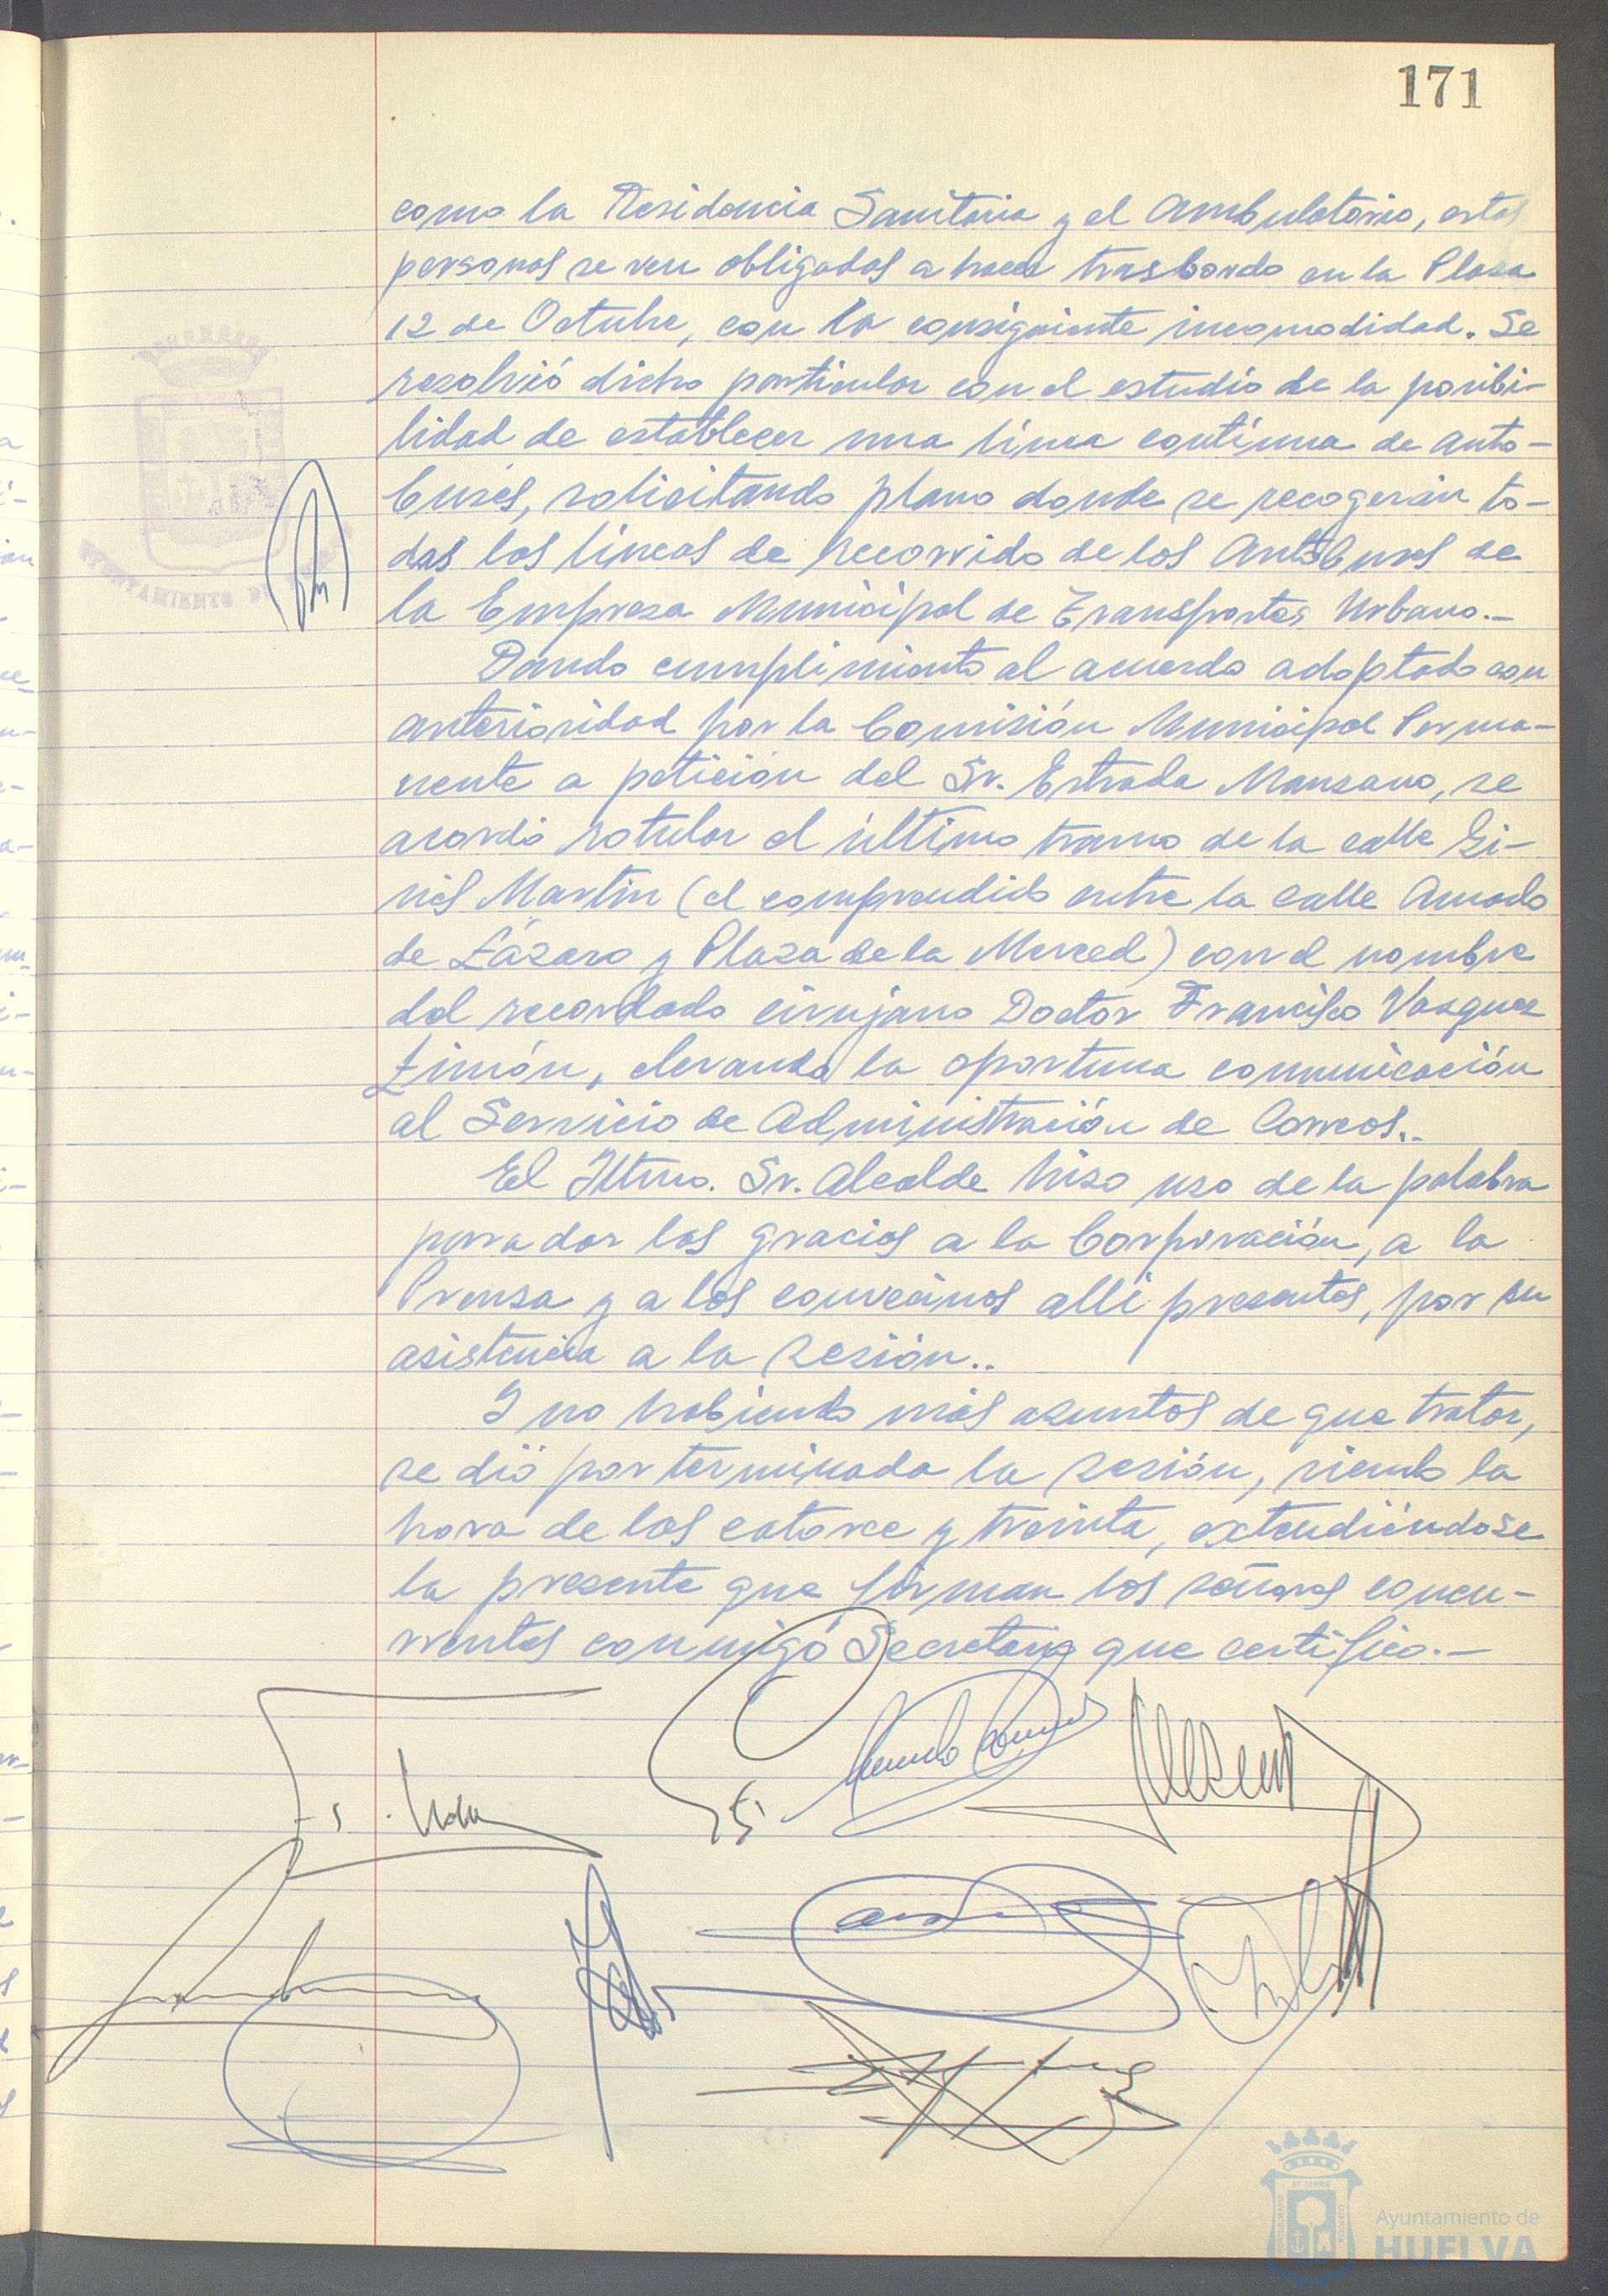 171
como la Residencia Sanitaria y el Ambulatorio, estas
personas se ven obligadas a hacer trasbordo en la Plaza
12 de Octubre, con la consiguiente incomodidad. Se
resolvió dicho particular con el estudio de la posibi-
lidad de establecer una línea contínua de auto-
buses, solicitando plano donde se recogerán to-
das las líneas de recorrido de los Autobuses de
la Empresa Municipal de Transportes Urbano.-
Dando cumplimiento al acuerdo adoptado con
anterioridad por la Comisión Municipal Perma-
nente a petición del Sr. Estrada Manzano, se
acordó rotular el último tramo de la calle Gi-
nés Martín (el comprendido entre la calle Amado
de Lázaro y Plaza de la Merced) con el nombre
del recordado cirujano Doctor Francisco Vazquez
Limón, elevando la oportuna comunicación
al Servicio de Administración de Correos.-
El Iltmo. Sr. Alcalde hizo uso de la palabra
para dar las gracias a la Corporación, a la
Prensa y a los convecinos allí presentes, por su
asistencia a la sesión..
Y no habiendo más asuntos de que tratar,
se dió por terminada la sesión, siendo la
hora de las catorce y treinta, extendiéndose
la presente que firman los señores concu-
rrentes conmigo Secretario que certifico.-
AYUNTAMIENTO DE HUELVA
Ayuntamiento de
HUELVA